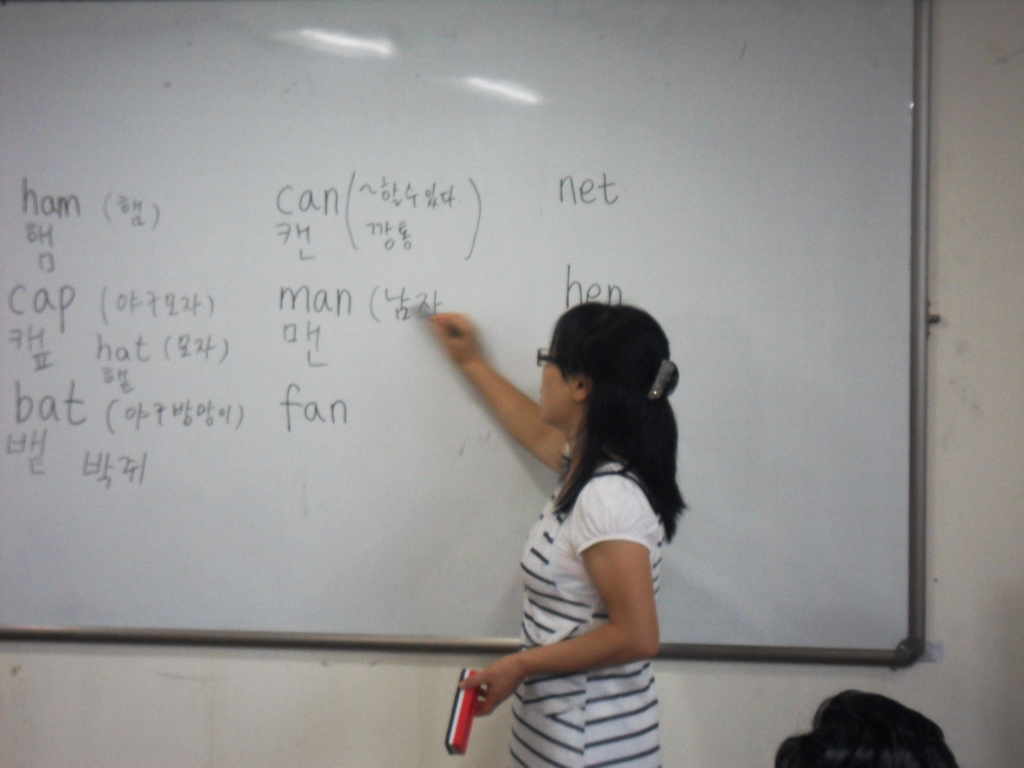 ham (햄)
햄
cap (야구모자)
캪 hat (모자)
햍
bat (야구방망이)
뱉 박쥐
can (~할수있다.
캔 깡통)
man (남자
맨
fan
net
hen